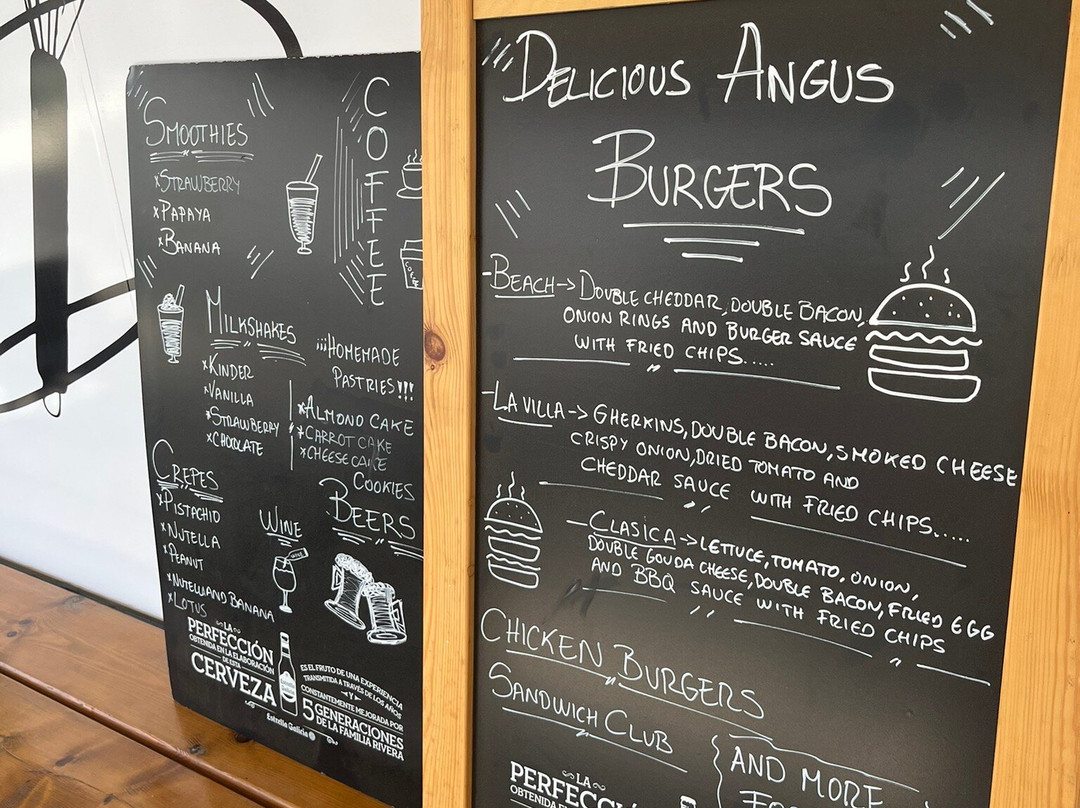 SMOOTHIES
*STRAWBERRY
*PAPAYA
*BANANA
COFFEE
MILKSHAKES
*KINDER
*VANILLA
*STRAWBERRY
*CHOCOLATE
¡¡¡HOMEMADE
PASTRIES!!!
*ALMOND CAKE
*CARROT CAKE
*CHEESE CAKE
COOKIES
CREPES
*PISTACHIO
*NUTELLA
*PEANUT
*NUTELLA AND BANANA
*LOTUS
WINE
WINE
BEERS
LA
PERFECCIÓN
OBTENIDA EN LA ELABORACIÓN
DE ESTA
CERVEZA
ES EL FRUTO DE UNA EXPERIENCIA
TRANSMITIDA A TRAVÉS DE LOS AÑOS
Y
CONSTANTEMENTE MEJORADA POR
5 GENERACIONES
DE LA FAMILIA RIVERA
Estrella Galicia
DELICIOUS ANGUS
BURGERS
-BEACH->DOUBLE CHEDDAR, DOUBLE BACON,
ONION RINGS AND BURGER SAUCE
WITH FRIED CHIPS.....
-LA VILLA->GHERKINS, DOUBLE BACON, SMOKED CHEESE
CRISPY ONION, DRIED TOMATO AND
CHEDDAR SAUCE WITH FRIED CHIPS.....
-CLASICA->LETTUCE, TOMATO, ONION,
DOUBLE GOUDA CHEESE, DOUBLE BACON, FRIED EGG
AND BBQ SAUCE WITH FRIED CHIPS
CHICKEN BURGERS
SANDWICH CLUB
AND MORE
LA